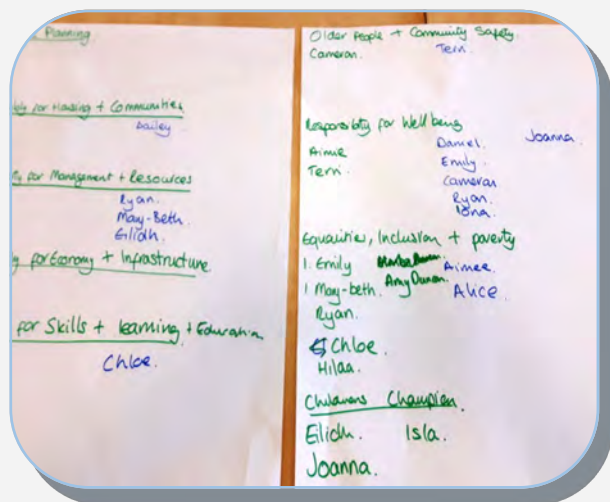 Planning
for Housing + Communities
Bailey
for Management + Resources
Ryan.
May-Beth.
Eilidh
for Economy + Infrastructure
for Skills + learning + Education
Chloe.
Older People + Community Safety.
Cameron. Terri.
Responsibity for Well being
Aimie Daniel. Joanna.
Terri. Emily.
Cameron
Ryan.
Iona.
Equalities, Inclusion + poverty
1. Emily Aimee.
1 May-beth. Amy Duncan. Alice.
Ryan.
Chloe.
Hilaa.
Childrens Champion.
Eilidh. Isla.
Joanna.